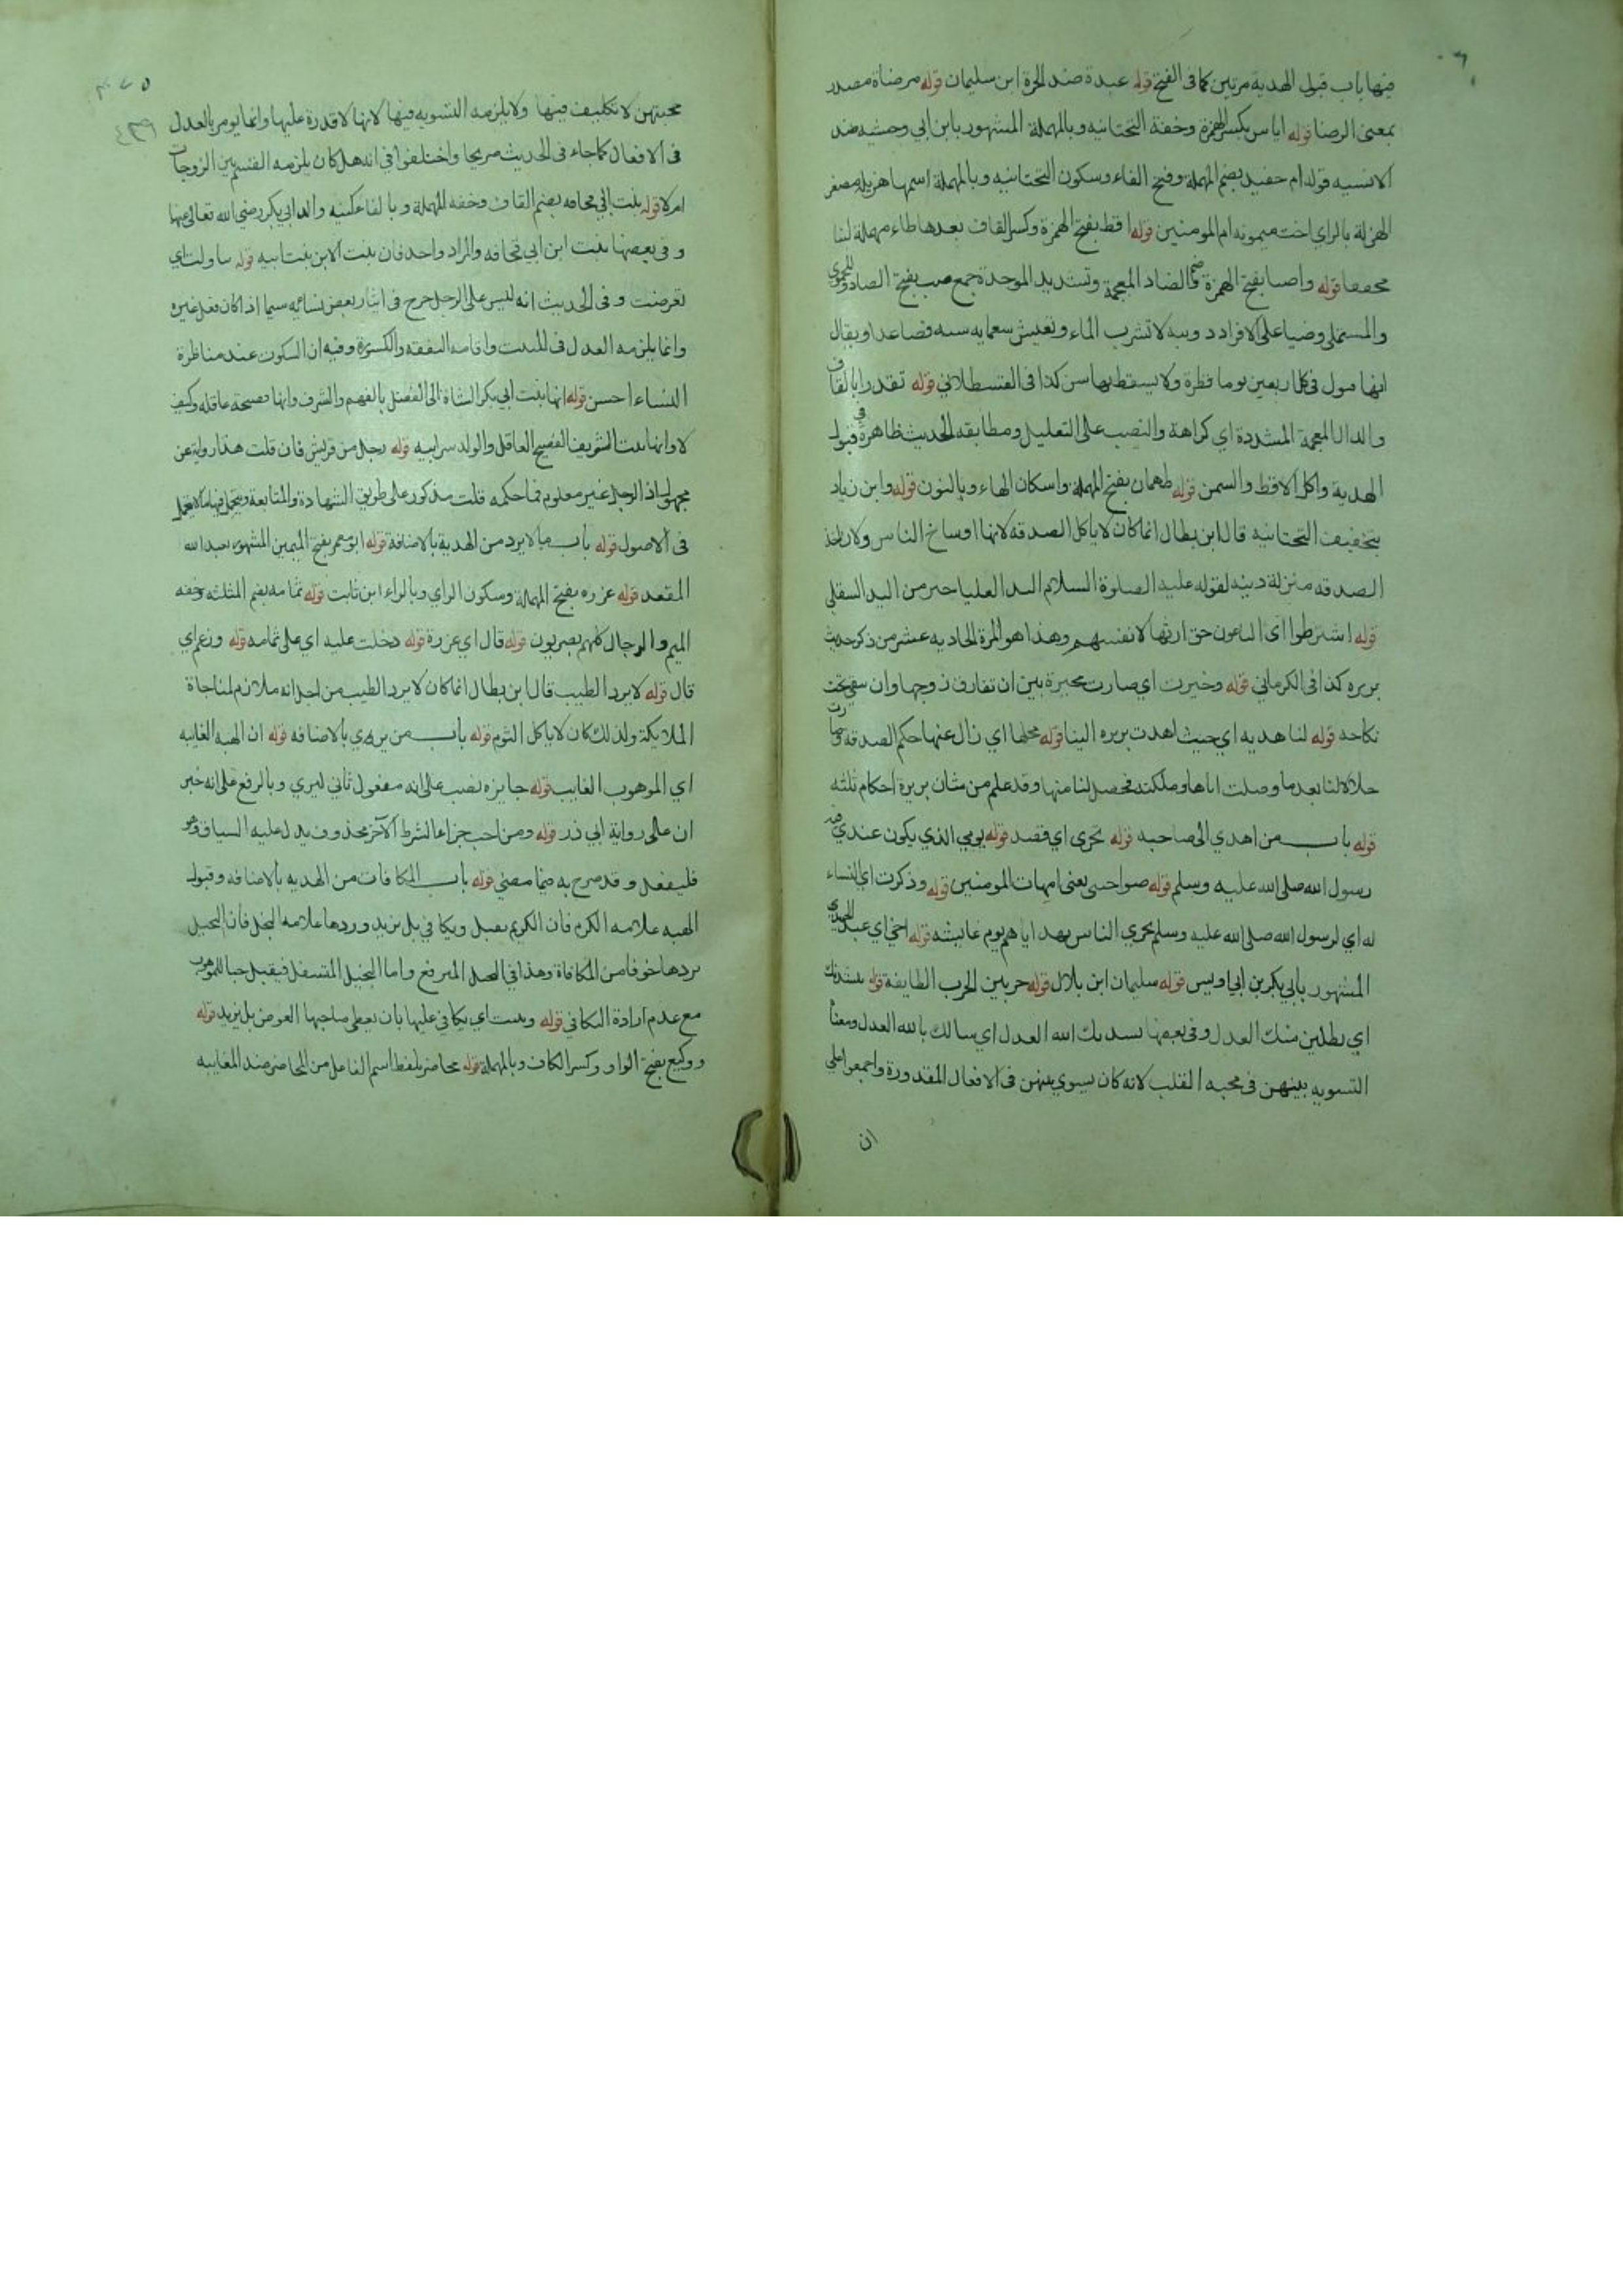 فيها باب قبول الهدية مرتين كما في الفتح قوله عبدة ضد الحرة ابن سليمان قوله مرضاة مصدر
بمعنى الرضا قوله اياس بكسر الهمزة وخفة التحتانيه وبالمهملة المشهور بابن ابي وحشيه ضد
الانسيه قوله ام حفيد بضم المهملة وفتح الفاء وسكون التحتانيه وبالمهملة اسمها هزيله مصغر
الهزلة بالزاي اخت ميمونه ام المومنين قوله اقط بفتح الهمزة وكسر القاف بعدها طاء مهملة لبنا
مجففا قوله واضبا بفتح الهمزة وضم الضاد المعجمة وتشديد الموحدة جمع ضب بفتح الضاد وللحموي
والمستملي وضبا على الافراد دويبه لا تشرب الماء وتعيش سبعمايه سنه فصاعدا ويقال
انها تبول في كل اربعين يوما قطرة ولا يسقط بها سن كذا في القسطلاني قوله تقذرا بالقاف
والذال المعجمة المشددة اي كراهة والنصب على التعليل ومطابقه الحديث ظاهرة في قبول
الهدية واكل الاقط والسمن قوله طهمان بفتح المهملة واسكان الهاء وبالنون قوله وابن زياد
بتخفيف التحتانيه قال ابن بطال انما كان لا ياكل الصدقه لانها اوساخ الناس ولان اخذ
الصدقه منزلة دنيه لقوله عليه الصلوة السلام اليد العليا خير من اليد السفلى
قوله اشترطوا اي البايعون حق ارثها لانفسهم وهذا هو المرة الحاديه عشر من ذكر حديث
بريره كذا في الكرماني قوله وخيرت اي صارت مخيرة بين ان تفارق زوجها وان تبقى تحت
نكاحه قوله لنا هديه اي حيث اهدت بريره الينا قوله محلها اي زال عنها حكم الصدقه وصارت
حلالا لنا بعد ما وصلت اياها وملكته فحصل لنا منها وقد علم من شان بريرة احكام ثلثه
قوله باب من اهدي الى صاحبه قوله تحرى اي قصد قوله يومي الذي يكون عندي فيه
رسول الله صلى الله عليه وسلم قوله صواحبى يعنى امهات المومنين قوله وذكرت اي النساء
له اي لرسول الله صلى الله عليه وسلم تحري الناس بهداياهم يوم عايشه قوله اخي اي عبد الحميدي
المشهور بابي بكر بن ابي اويس قوله سليمان ابن بلال قوله حزبين الحزب الطايفة قوله ينشدنك
اي يطلبن منك العدل وفي بعضها ينشدنك الله العدل اي يسالك بالله العدل ومعناه
التسويه بينهن في محبه القلب لانه كان يسوي بينهن في الافعال المقدورة واجمعوا على
ان
محبتهن لا تكليف فيها ولا يلزمه التسويه فيها لانها لا قدرة عليها وانما يومر بالعدل
في الافعال كما جاء في الحديث صريحا واختلفوا في انه هل كان يلزمه القسم بين الزوجات
ام لا قوله بنت ابي قحافه بضم القاف وخفه المهملة وبالفاء كنيه والد ابي بكر رضي الله تعالى عنها
وفي بعضها بنت ابن ابي قحافه والمراد واحد فان بنت الابن بنت ابيه قوله تناولت اي
تعرضت وفي الحديث انه ليس على الرجل حرج في ايثار بعض نسائه سيما اذا كان فعل غيره
وانما يلزمه العدل في المبيت واقامه النفقه والكسوة وفيه ان السكوت عند مناظرة
النساء احسن قوله انها بنت ابي بكر اشارة الى الفضل بالفهم والشرف وانها فصيحة عاقله وكيف
لا وانها بنت الشريف الفصيح العاقل والولد سر ابيه قوله رجل من قريش فان قلت هذا رواية عن
مجهول اذ الرجل غير معلوم فما حكمه قلت مذكور على طريق الشهادة والمتابعة ويحتمل فيها ما لا يحتمل
في الاصول قوله باب ما لا يرد من الهدية بالاضافة قوله ابو معمر بفتح الميمين المشهور بعبد الله
المقعد قوله عزره بفتح المهملة وسكون الزاي وبالراء ابن ثابت قوله ثمامه بضم المثلثه وخفه
الميم والرجال كلهم بصريون قوله قال اي عزرة قوله دخلت عليه اي على ثمامه قوله وزعم اي
قال قوله لا يرد الطيب قال ابن بطال انما كان لا يرد الطيب من اجل انه ملازم لمناجاة
الملايكة ولذلك كان لا ياكل الثوم قوله باب من يرى بالاضافه قوله ان الهبه الغايبه
اي الموهوب الغايب قوله جايزه نصب على انه مفعول ثاني ليري وبالرفع على انه خبر
ان على رواية ابي ذر قوله ومن احب جزاء الشرط الآخر محذوف يدل عليه السياق وهو
فليفعل وقد صرح به فيما مضى قوله باب المكافات من الهديه بالاضافه وقبول
الهبه علامه الكرم فان الكريم يقبل ويكافي بل يزيد وردها علامه البخل فان البخيل
يردها خوفا من المكافاة وهذا في البخيل المترفع واما البخيل المتسفل فيقبل حبا للموهوب
مع عدم ارادة التكافي قوله ويثيب اي يكافي عليها بان يعطى صاحبها العوض بل يزيد قوله
ووكيع بفتح الواو وكسر الكاف وبالمهملة قوله محاضر بلفظ اسم الفاعل من الحاضر ضد الغايبه